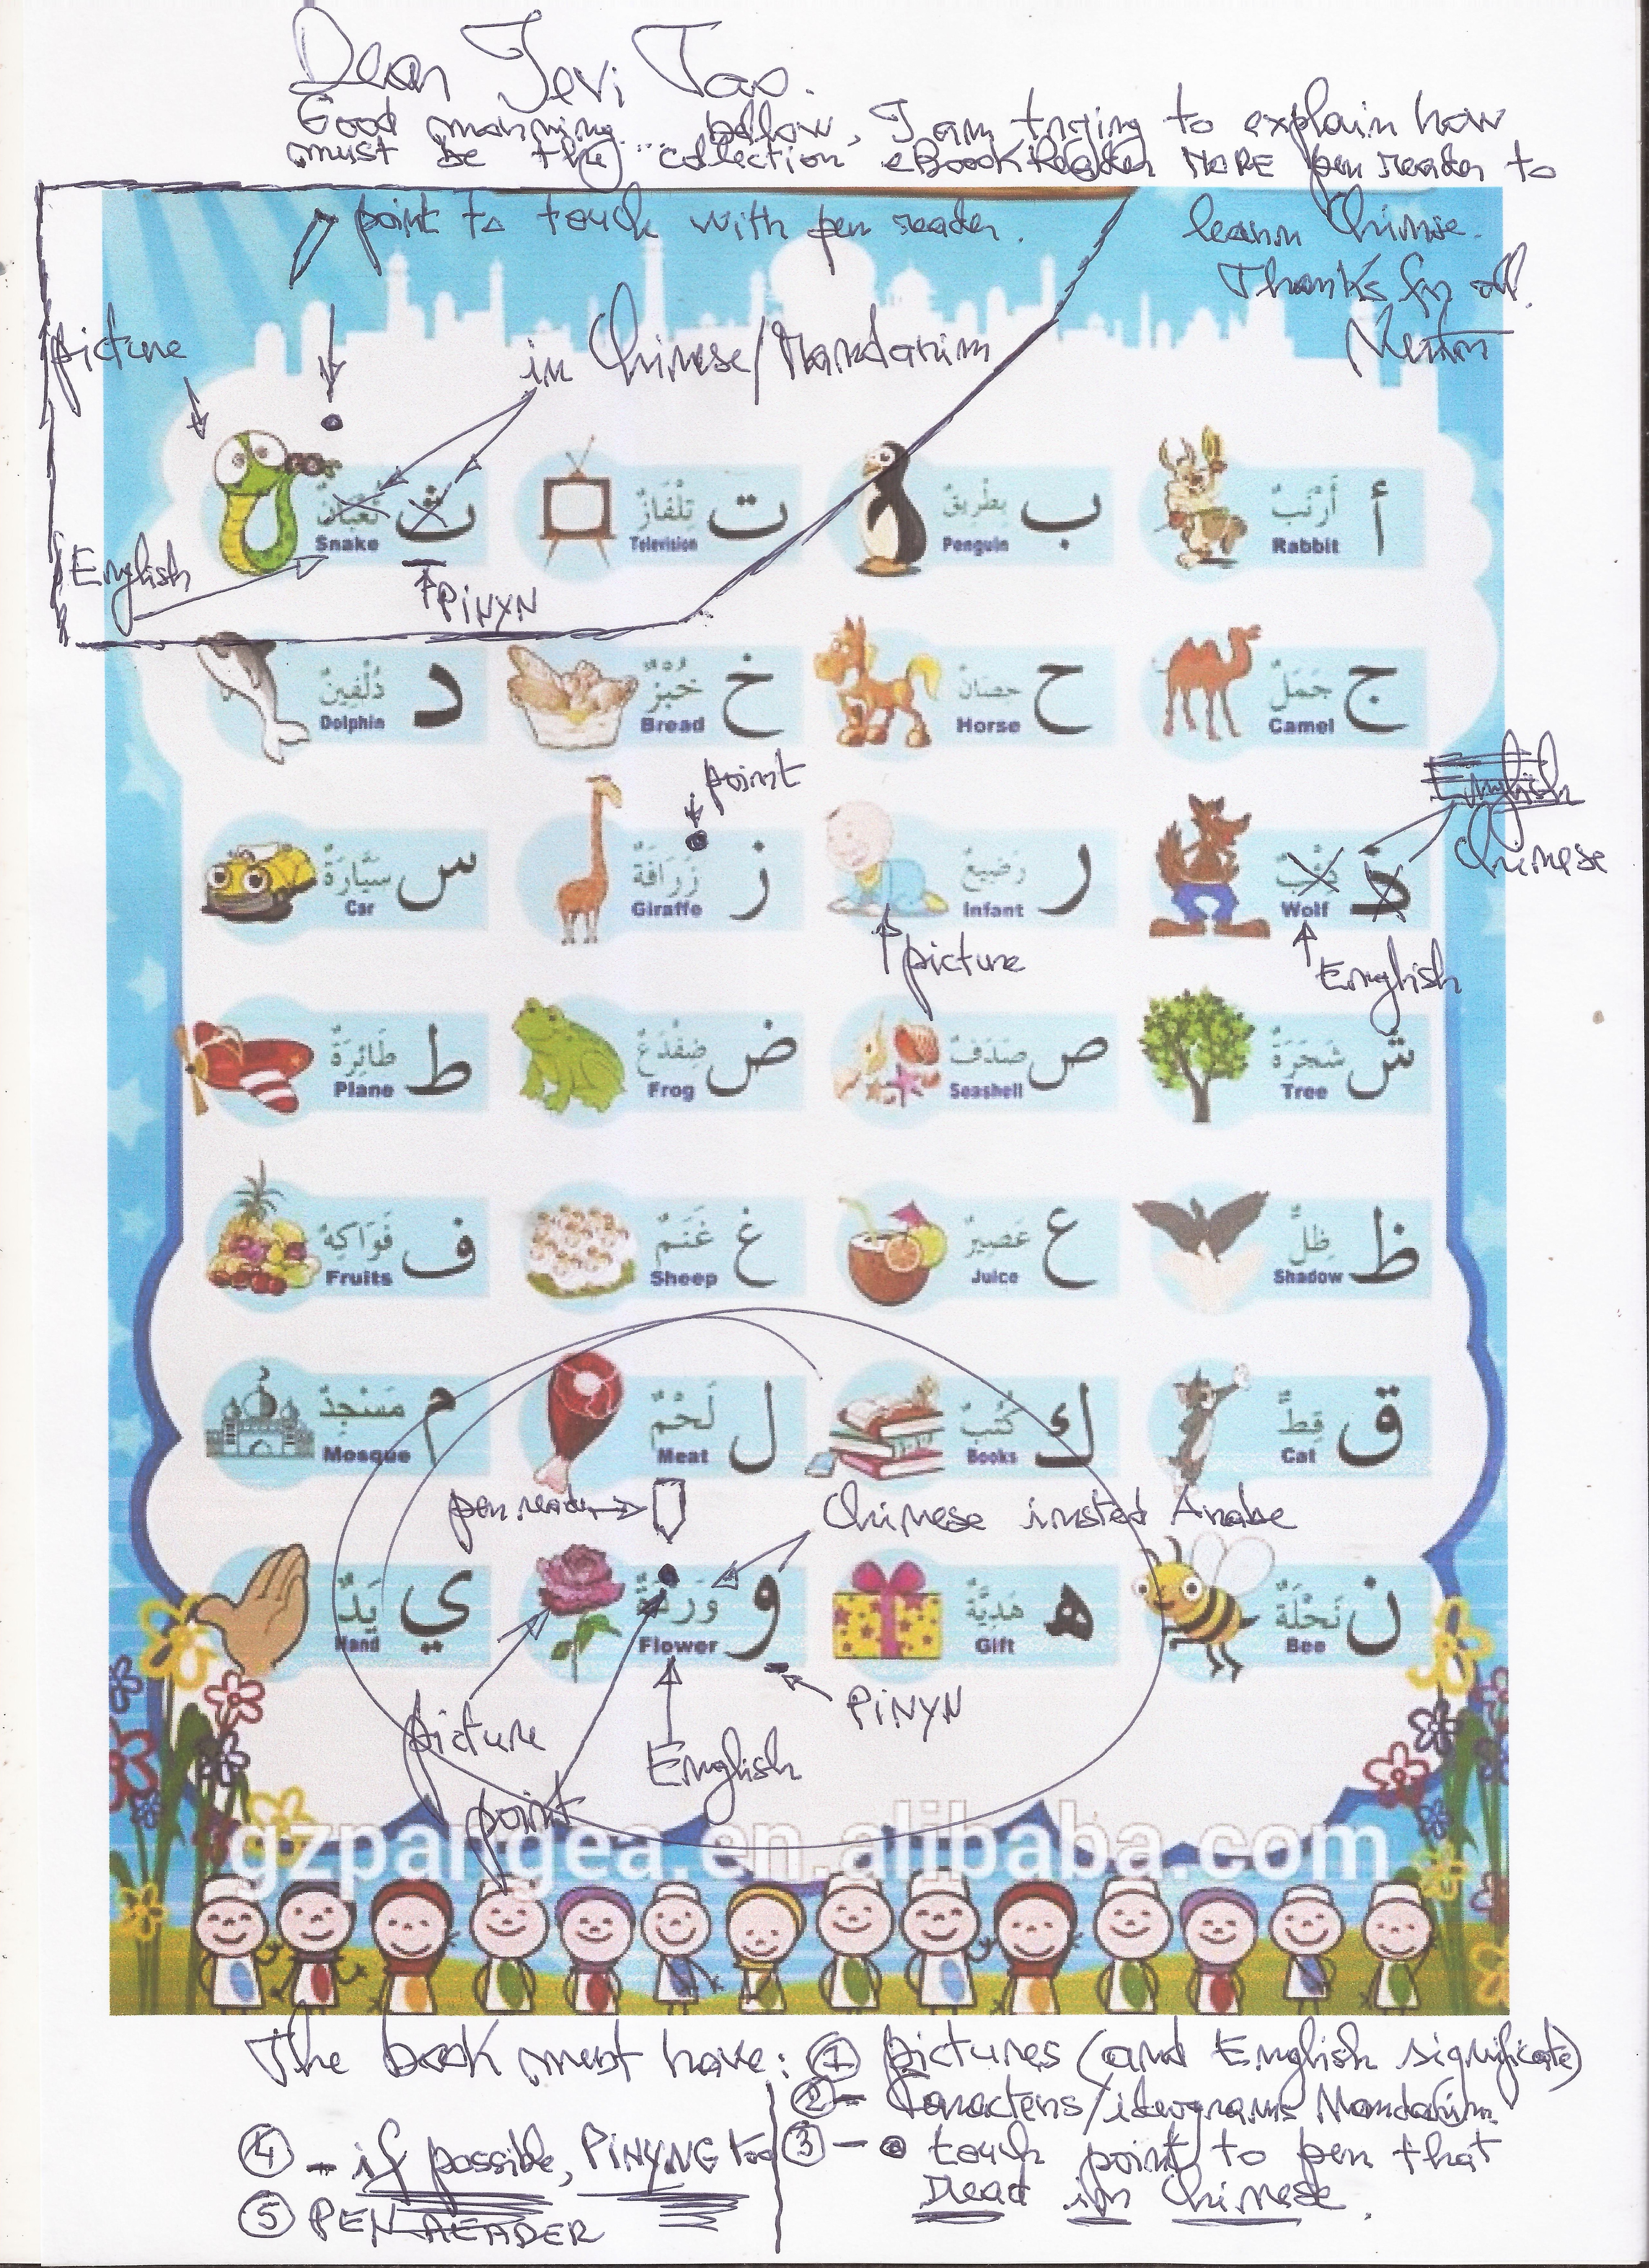 Dear Jevi Tao.
Good morning... bellow, I am trying to explain how
must be the collection eBook Reader MORE pen reader to
learn Chinise.
Thanks for all.
point to touch with pen reader.
picture
in Chinese/Mandarim
ث ثُعْبَانٌ Snake
ت تِلْفَازٌ Television
ب بِطْرِيقٌ Penguin
أ أَرْنَبٌ Rabbit
English
PiNYN
د دُلْفِينٌ Dolphin
خ خُبْزٌ Bread
ح حِصَانٌ Horse
ج جَمَلٌ Camel
point
English
Chinese
س سَيَّارَةٌ Car
ز زَرَافَةٌ Giraffe
ر رَضِيعٌ Infant
ذ ذِئْبٌ Wolf
picture
English
ط طَائِرَةٌ Plane
ض ضِفْدَعٌ Frog
ص صَدَفٌ Seashell
ش شَجَرَةٌ Tree
ف فَوَاكِهٌ Fruits
غ غَنَمٌ Sheep
ع عَصِيرٌ Juice
ظ ظِلٌّ Shadow
م مَسْجِدٌ Mosque
ل لَحْمٌ Meat
ك كُتُبٌ Books
ق قِطٌّ Cat
pen reader
Chinese insted Arabe
ي يَدٌ Hand
و وَرْدَةٌ Flower
ه هَدِيَّةٌ Gift
ن نَحْلَةٌ Bee
picture
English
PiNYN
point
gzpangea.en.alibaba.com
The book must have: ① pictures (and English significate)
②- Caracters/ideograms Mandarim
③- touch point to pen that
Read in Chinese.
④- if possible, PiNYNG too
⑤ PEN READER